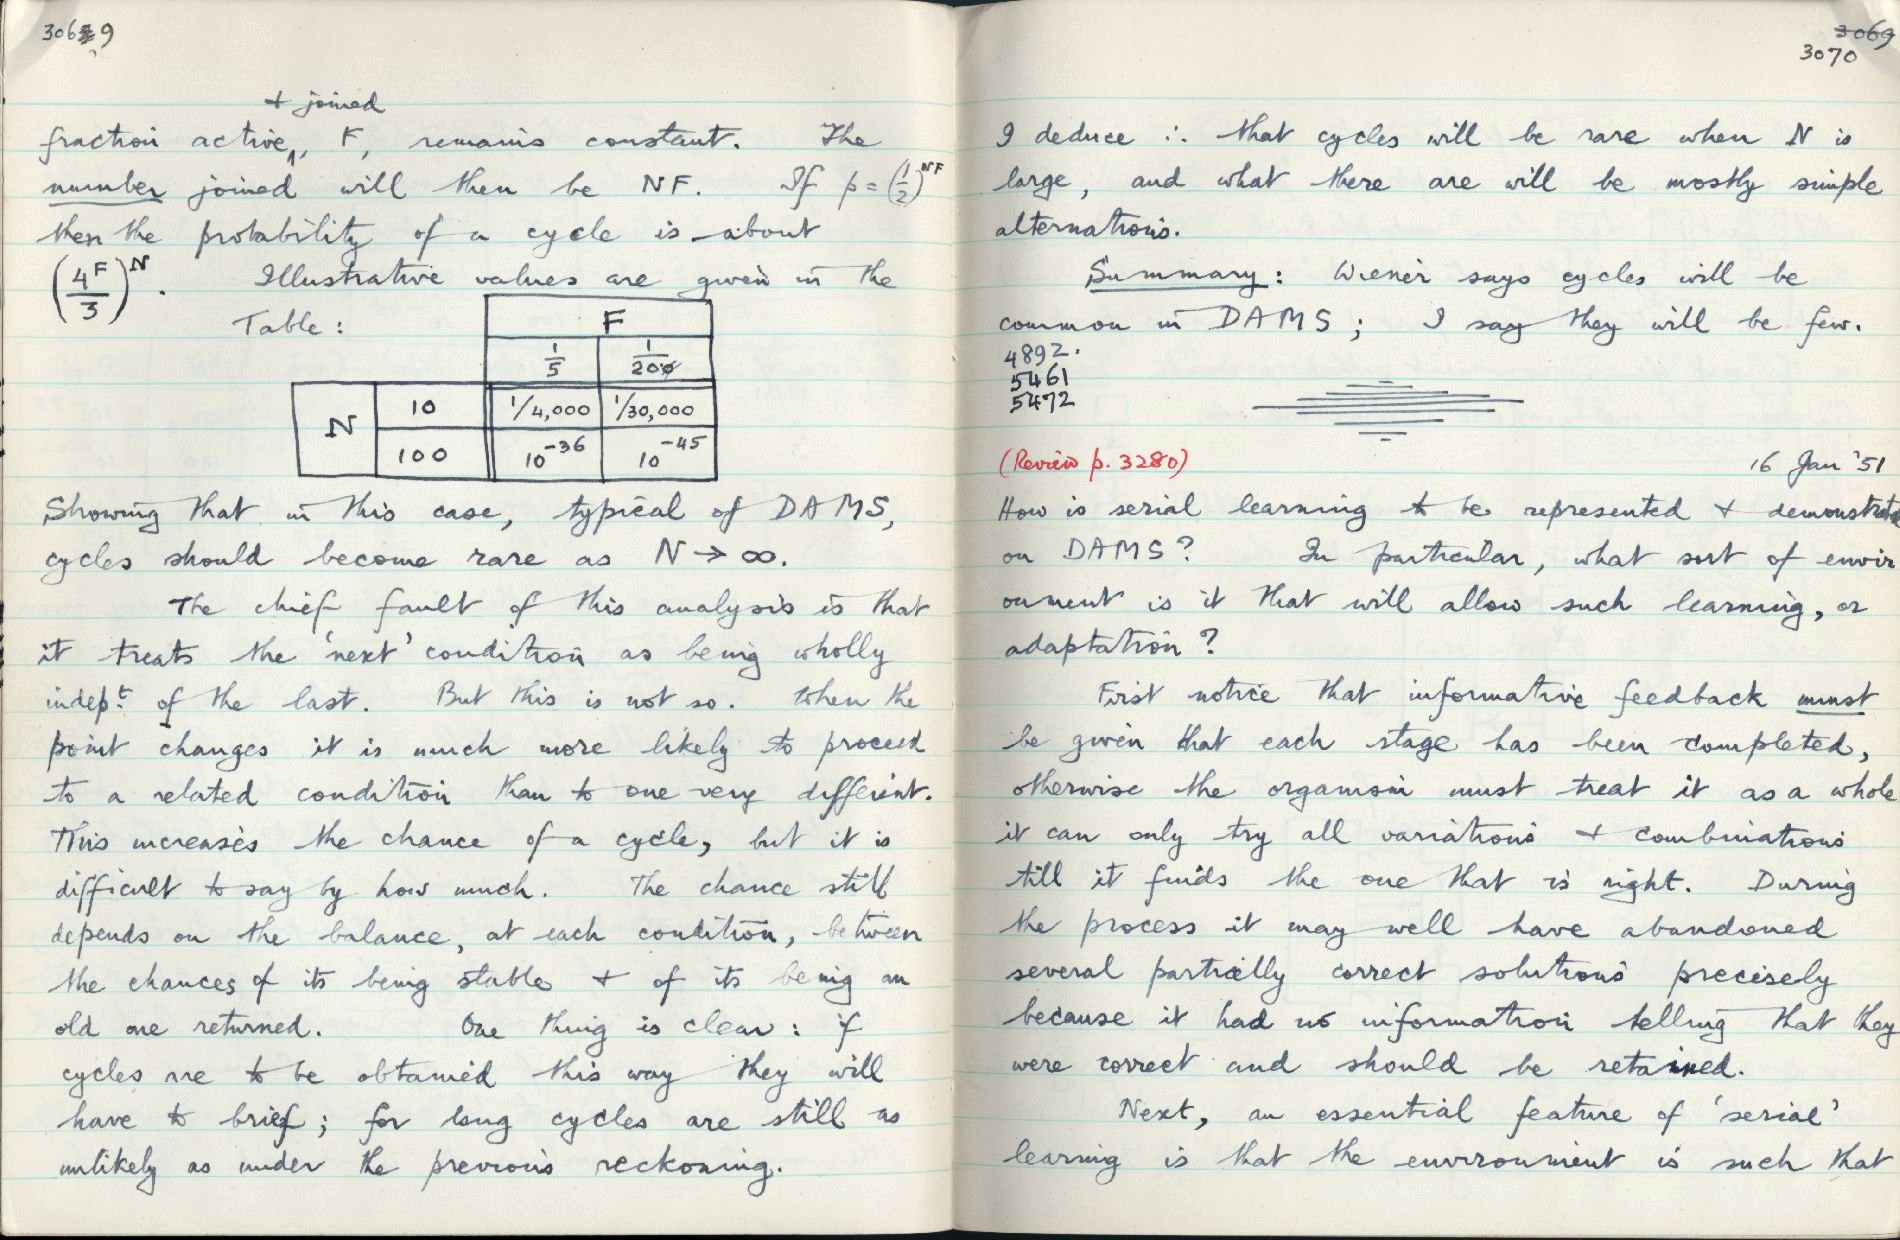 3069
+ joined
fraction active, F, remains constant. The
number joined will then be NF. If p = (1/2)^NF
then the probability of a cycle is about
(4^F/3)^N. Illustrative values are given in the
Table:
F
1/5 1/200
N 10 1/4,000 1/30,000
100 10^-36 10^-45
Showing that in this case, typical of DAMS,
cycles should become rare as N → ∞.
The chief fault of this analysis is that
it treats the 'next' condition as being wholly
indep.t of the last. But this is not so. When the
point changes it is much more likely to proceed
to a related condition than to one very different.
This increases the chance of a cycle, but it is
difficult to say by how much. The chance still
depends on the balance, at each condition, between
the chances of its being stable + of its being an
old one returned. One thing is clear: if
cycles are to be obtained this way they will
have to brief; for long cycles are still as
unlikely as under the previous reckoning.
3069
3070
I deduce ∴ that cycles will be rare when N is
large, and what there are will be mostly simple
alternations.
Summary: Wiener says cycles will be
common in DAMS; I say they will be few.
4892.
5461
5472
(Review p. 3280) 16 Jan '51
How is serial learning to be represented + demonstrated
on DAMS? In particular, what sort of envir
onment is it that will allow such learning, or
adaptation?
First notice that informative feedback must
be given that each stage has been completed,
otherwise the organism must treat it as a whole
it can only try all variations + combinations
till it finds the one that is right. During
the process it may well have abandoned
several partially correct solutions precisely
because it had no information telling that they
were correct and should be retained.
Next, an essential feature of 'serial'
learning is that the environment is such that